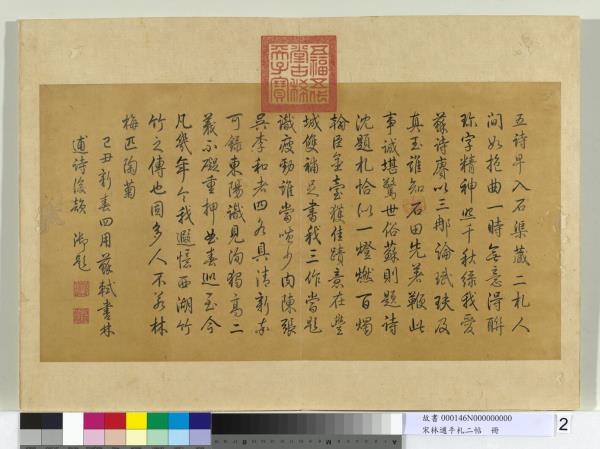 五福五代
堂古稀
天子寶
五詩早入石渠蔵二札人
間如抱曲一時無意得聨
珍字精神照千秋緑我愛
蘇詩賡以三那論珷玞及
真玉誰知石田先著鞭此
事誠堪驚世俗蘇則題詩
沈題札恰似一燈燃百燭
翰臣無壹獲佳蹟意在豐
城雙補足書我三作當題
識疲勁誰當嘆少肉陳張
吳李和者四名具清新東
可録東陽識見洵獨高二
義示礙重押曲春巡至今
凡幾年今我遐憶西湖竹
竹之傳也固多人不若林
梅匹陶菊
己丑新春四用蘇軾書林
逋詩後韻 御題
故書 000146N000000000
宋林逋手札二帖 冊
2